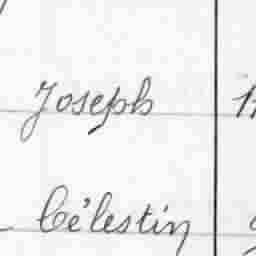 Joseph
Célestin